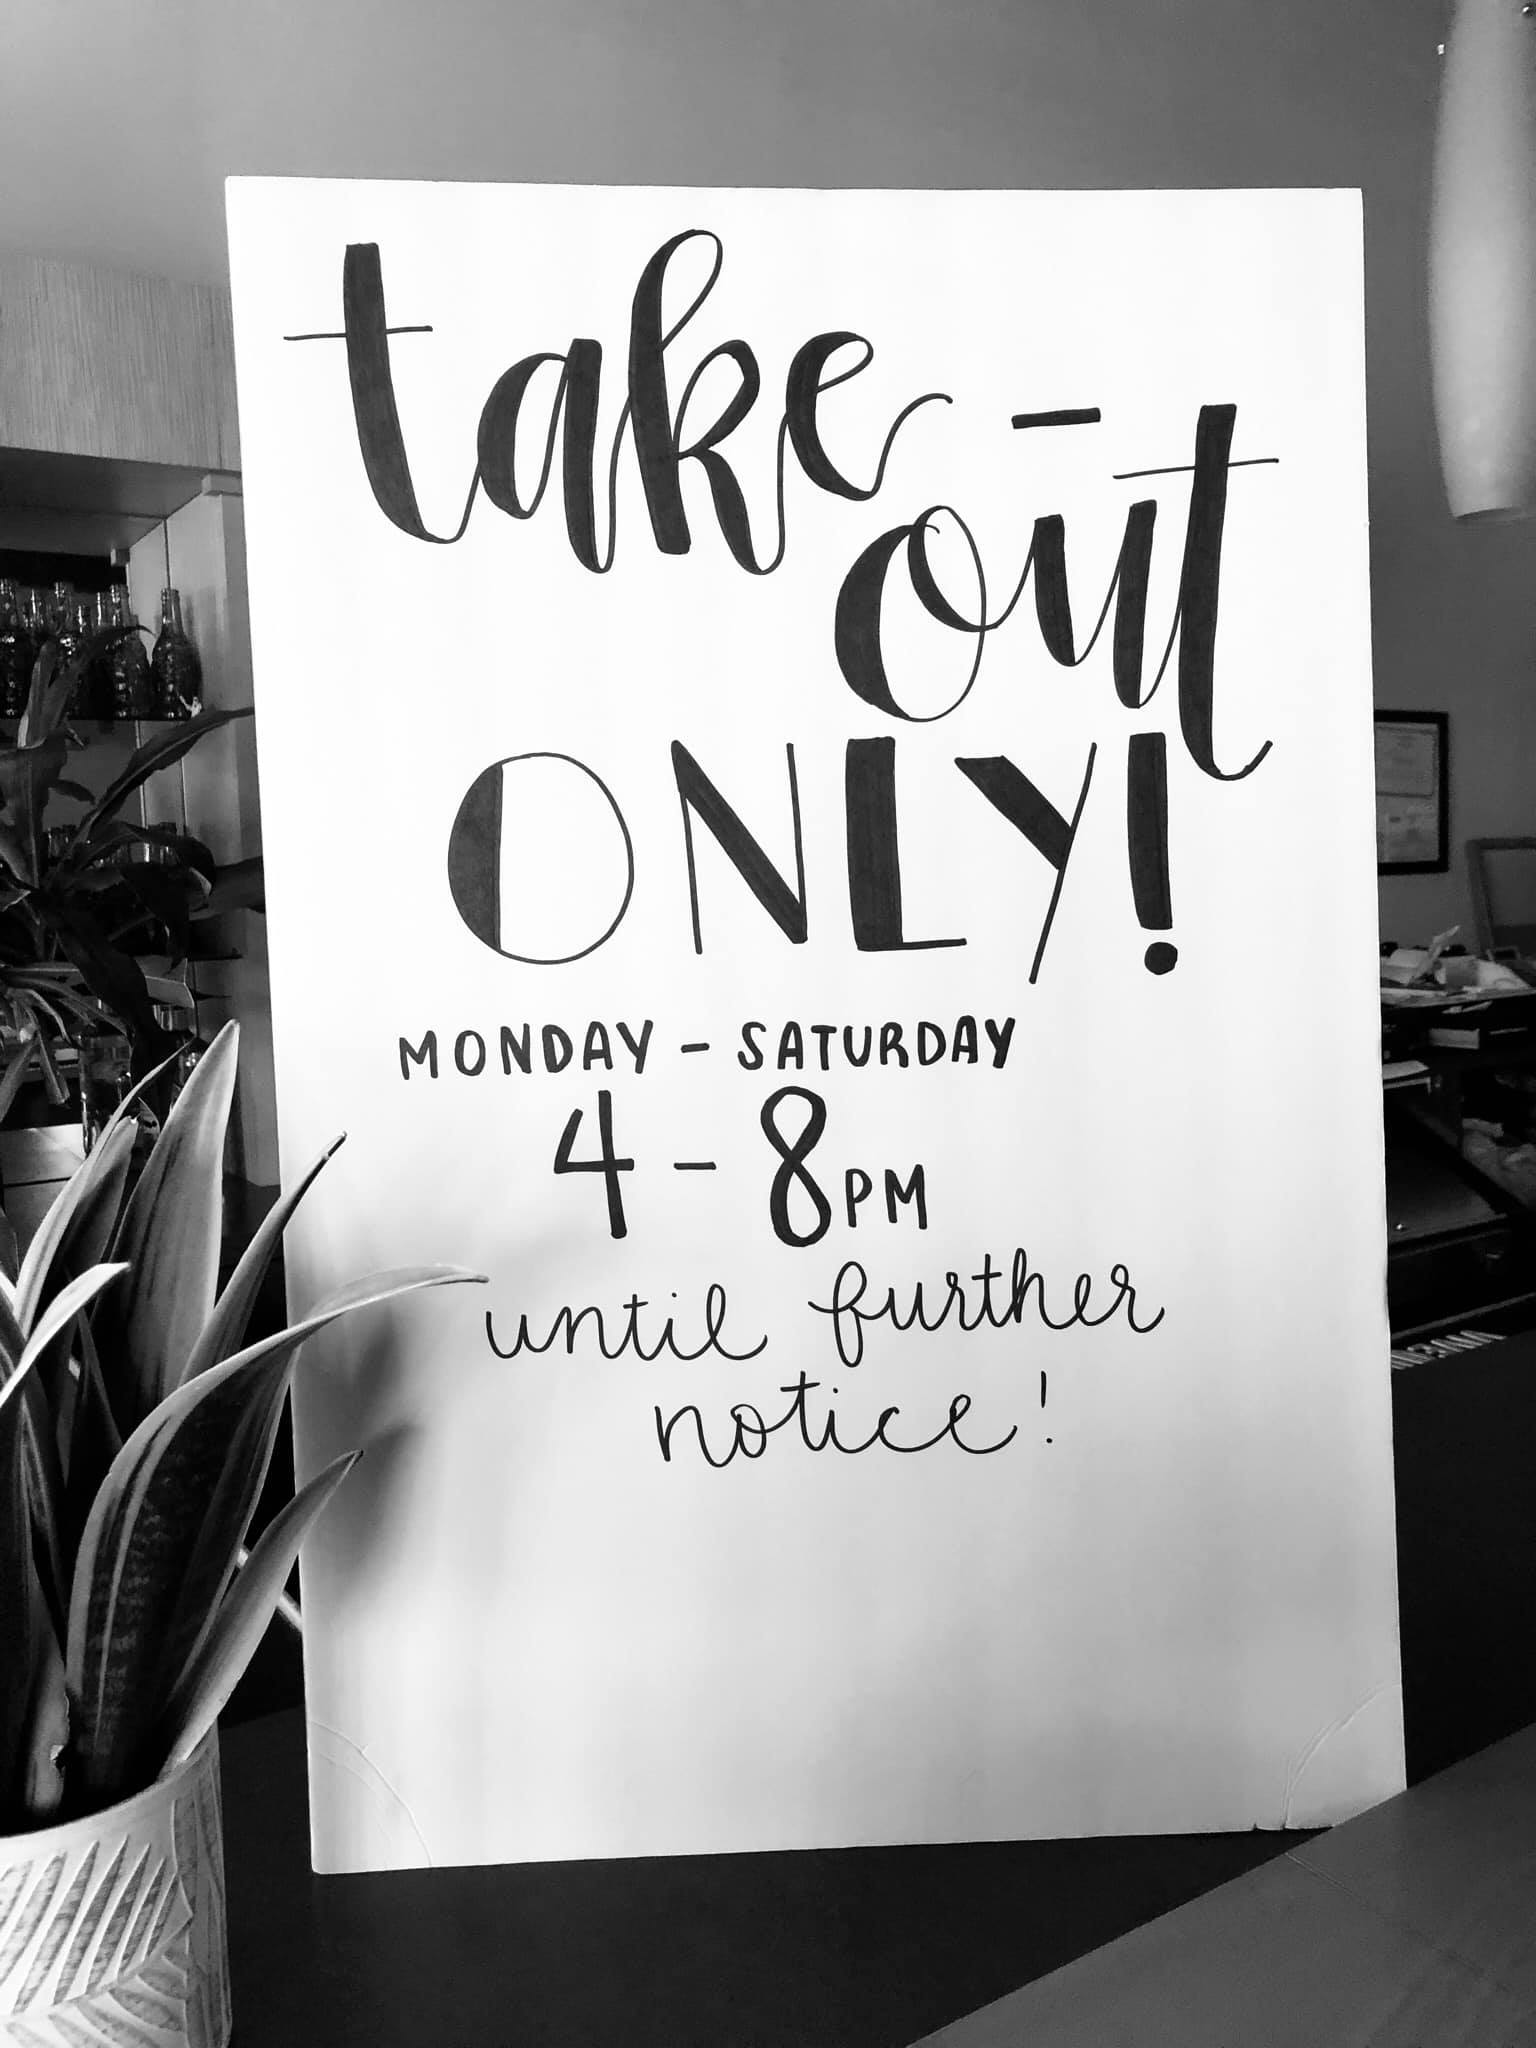 take-
out
ONLY!
MONDAY - SATURDAY
4 - 8PM
until further
notice!